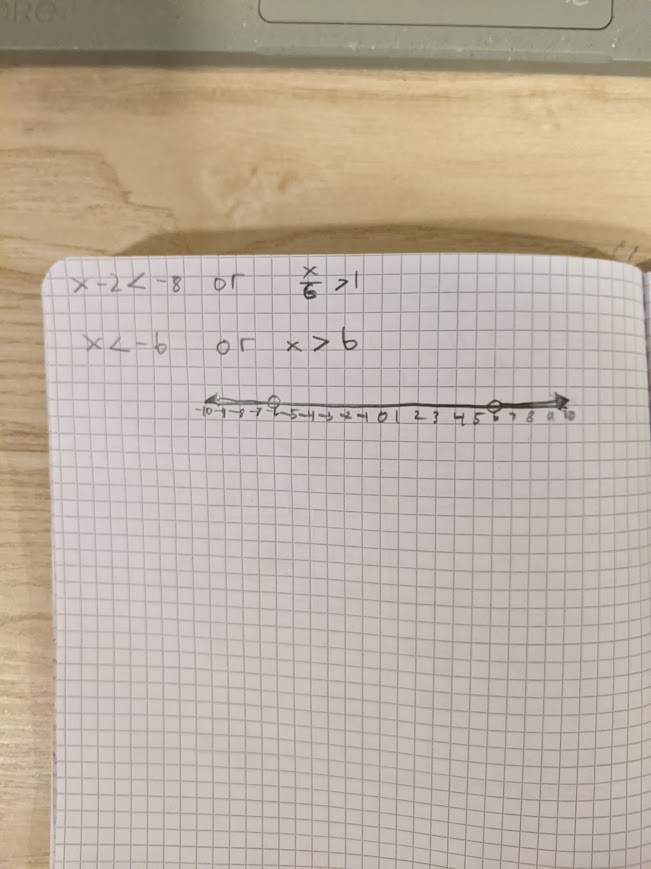 ORE
x-2<-8 or x/6 >1
x<-6 or x>6
-10 -9 -8 -7 -6 -5 -4 -3 -2 -1 0 1 2 3 4 5 6 7 8 9 10